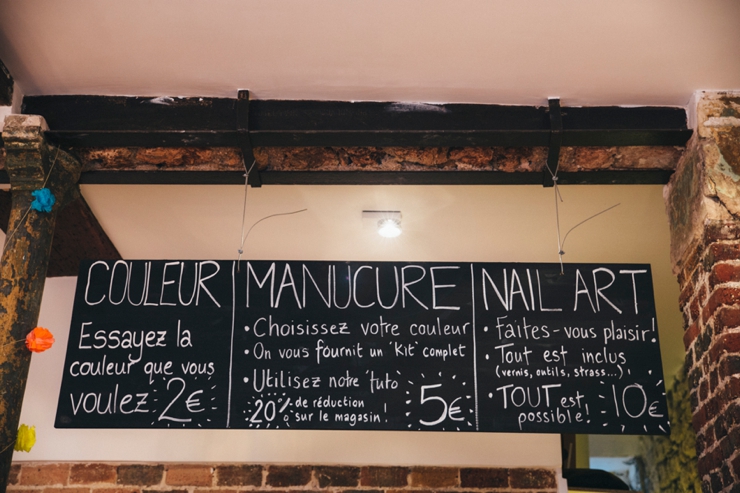 COULEUR
Essayez la
couleur que vous
voulez 2€
MANUCURE
• Choisissez votre couleur
• On vous fournit un 'Kit' complet
• Utilisez notre 'tuto'
20% de réduction
sur le magasin!
5€
NAIL ART
• Faites-vous plaisir!
• Tout est inclus
(vernis, outils, strass...)
• TOUT est
possible!
10€